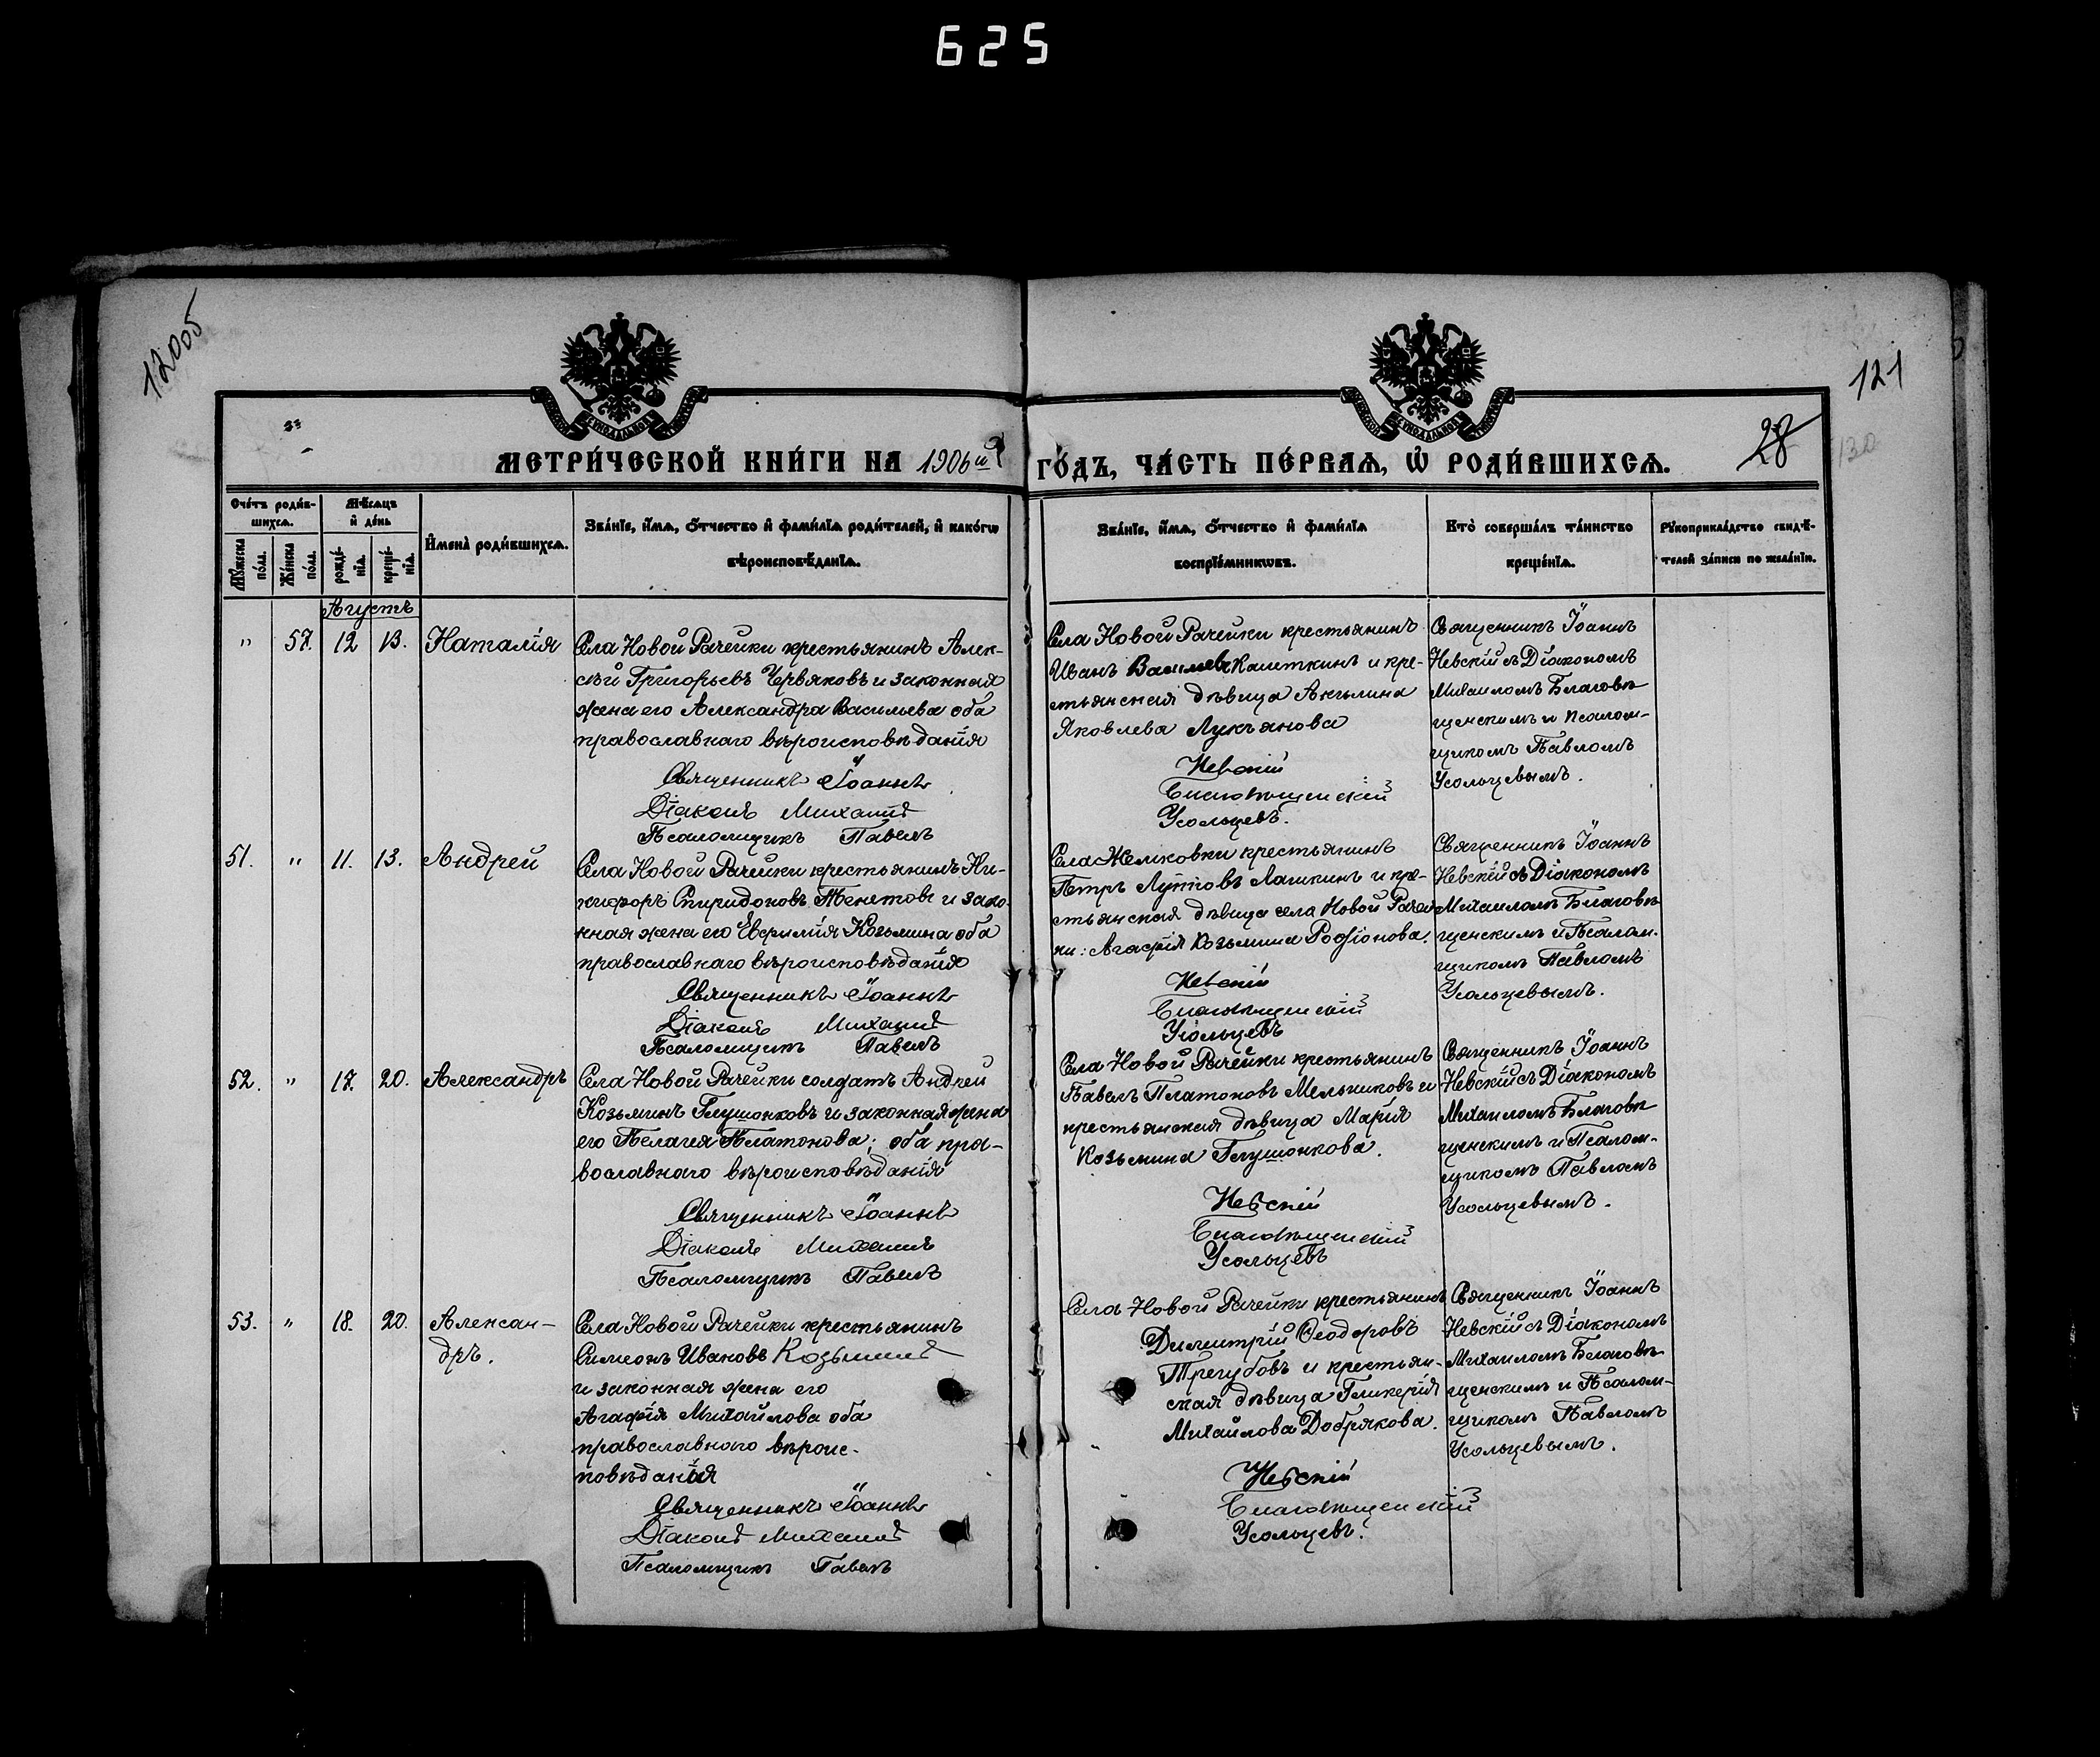 625
120об
121
28
130
МЕТРИ́ЧЕСКОЙ КНИ́ГИ НА 1906й
ГО́ДЪ, ЧА́СТЬ ПЕ́РВАЯ, Ѡ҆ РОДИ́ВШИХСЯ.
Сче́тъ роди́в-
шихся.
Мѣ́сяцъ
и҆ де́нь
Му́жеска по́ла.
Же́нска по́ла.
рожде́-
нїя.
креще́-
нїя.
И҆мена̀ роди́вшихся.
Зва́нїе, и҆́мя, о҆́тчество и҆ фами́лїя роди́телей, и҆ како́гѡ
вѣроисповѣ́данїя.
Зва́нїе, и҆́мя, о҆́тчество и҆ фами́лїя
воспрїе́мникѡвъ.
Кто̀ соверша́лъ та́инство
креще́нїя.
Рꙋкоприкла́дство свидѣ́-
телей за́писи по жела́нїю.
Августъ
" 57. 12 13. Наталія
Села Новой Рачейки крестьянинъ Алек-
сѣй Григорьевъ Червяковъ и законная
жена его Александра Васильева оба
православнаго вѣроисповѣданія
Священникъ Іоаннъ
Діаконъ Михаилъ
Псаломщикъ Павелъ
Села Новой Рачейки крестьянинъ
Иванъ Васильевъ Калеткинъ и кре-
стьянская дѣвица Акилина
Яковлева Лукъянова
Невскій
Благовѣщенскій
Усольцевъ.
Священникъ Іоаннъ
Невскій съ Діакономъ
Михаиломъ Благовѣ
щенскимъ и псалом-
щикомъ Павломъ
Усольцевымъ.
51. " 11. 13. Андрей
Села Новой Рачейки крестьянинъ Ни-
кифоръ Спиридоновъ Тенетовъ и зако-
нная жена его Евфимія Козьмина оба
православнаго вѣроисповѣданія
Священникъ Іоаннъ
Діаконъ Михаилъ
Псаломщикъ Павелъ
Села Жемковки крестьянинъ
Петръ Лашкинъ и кре-
стьянская дѣвица села Новой Рачей
ки: Агафія Козьмина Родіонова.
Невскій
Благовѣщенскій
Усольцевъ
Священникъ Іоаннъ
Невскій съ Діакономъ
Михаиломъ Благовѣ
щенскимъ и Псалом-
щикомъ Павломъ
Усольцевымъ.
52. " 17. 20. Александръ
Села Новой Рачейки солдатъ Андрей
Козьминъ Глушонковъ и законная жена
его Пелагея Платонова; оба пра-
вославнаго вѣроисповѣданія
Священникъ Іоаннъ
Діаконъ Михаилъ
Псаломщикъ Павелъ
Села Новой Рачейки крестьянинъ
Павелъ Платоновъ Мельниковъ и
крестьянская дѣвица Марія
Козьмина Глушонкова.
Невскій
Благовѣщенскій
Усольцевъ
Священникъ Іоаннъ
Невскій съ Діакономъ
Михаиломъ Благовѣ
щенскимъ и Псалом-
щикомъ Павломъ
Усольцевымъ.
53. " 18. 20. Алексан-
дръ.
Села Новой Рачейки крестьянинъ
Симеонъ Ивановъ Козьминъ
и законная жена его
Агафія Михайлова оба
православнаго вѣроис-
повѣданія
Священникъ Іоаннъ
Діаконъ Михаилъ
Псаломщикъ Павелъ
Села Новой Рачейки крестьянинъ
Димитрій Ѳеодоровъ
Трегубовъ и крестьян-
ская дѣвица Гликерія
Михайлова Добрякова.
Невскій
Благовѣщенскій
Усольцевъ.
Священникъ Іоаннъ
Невскій съ Діакономъ
Михаиломъ Благовѣ
щенскимъ и Псалом-
щикомъ Павломъ
Усольцевымъ.